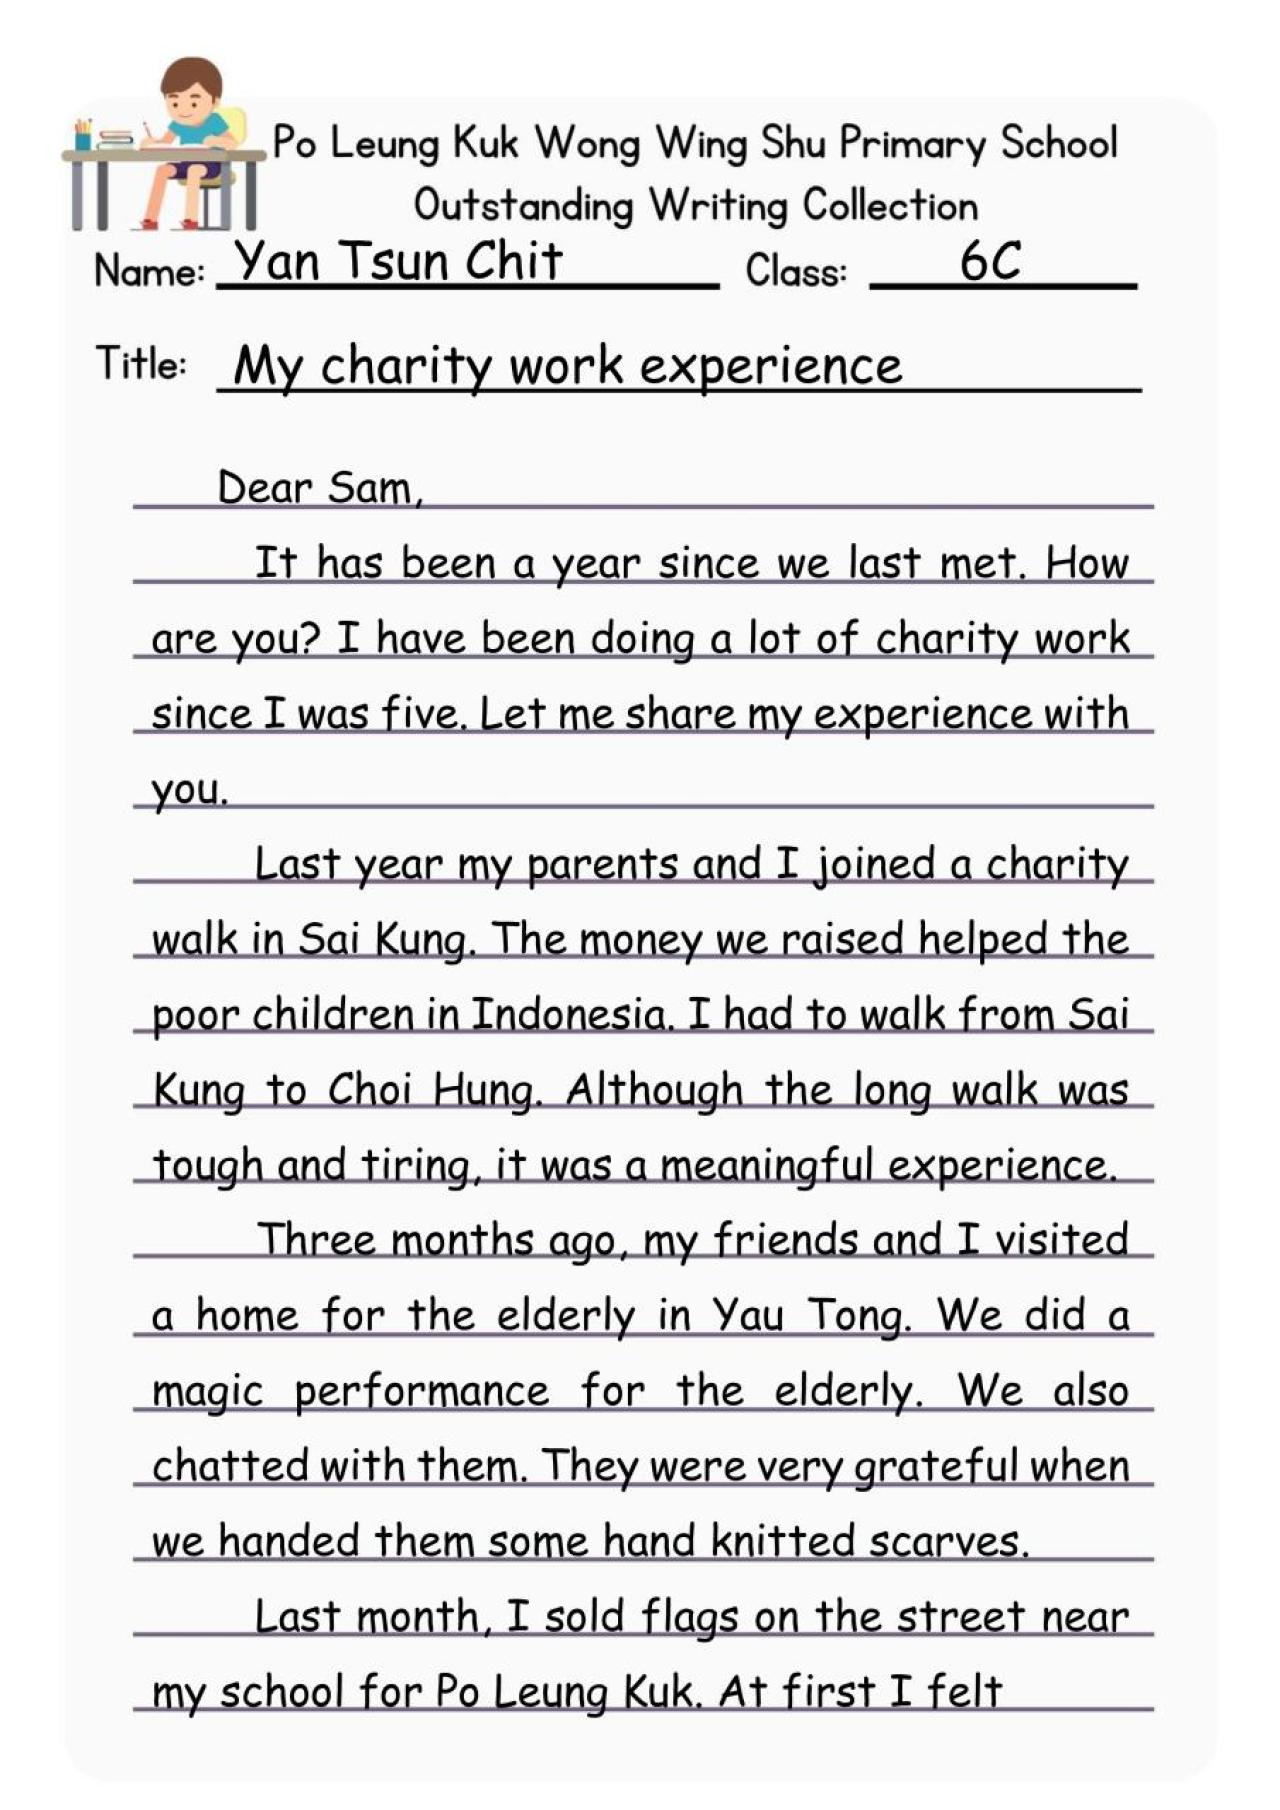 Po Leung Kuk Wong Wing Shu Primary School
Outstanding Writing Collection
Name: Yan Tsun Chit Class: 6C
Title: My charity work experience
Dear Sam,
It has been a year since we last met. How
are you? I have been doing a lot of charity work
since I was five. Let me share my experience with
you.
Last year my parents and I joined a charity
walk in Sai Kung. The money we raised helped the
poor children in Indonesia. I had to walk from Sai
Kung to Choi Hung. Although the long walk was
tough and tiring, it was a meaningful experience.
Three months ago, my friends and I visited
a home for the elderly in Yau Tong. We did a
magic performance for the elderly. We also
chatted with them. They were very grateful when
we handed them some hand knitted scarves.
Last month, I sold flags on the street near
my school for Po Leung Kuk. At first I felt